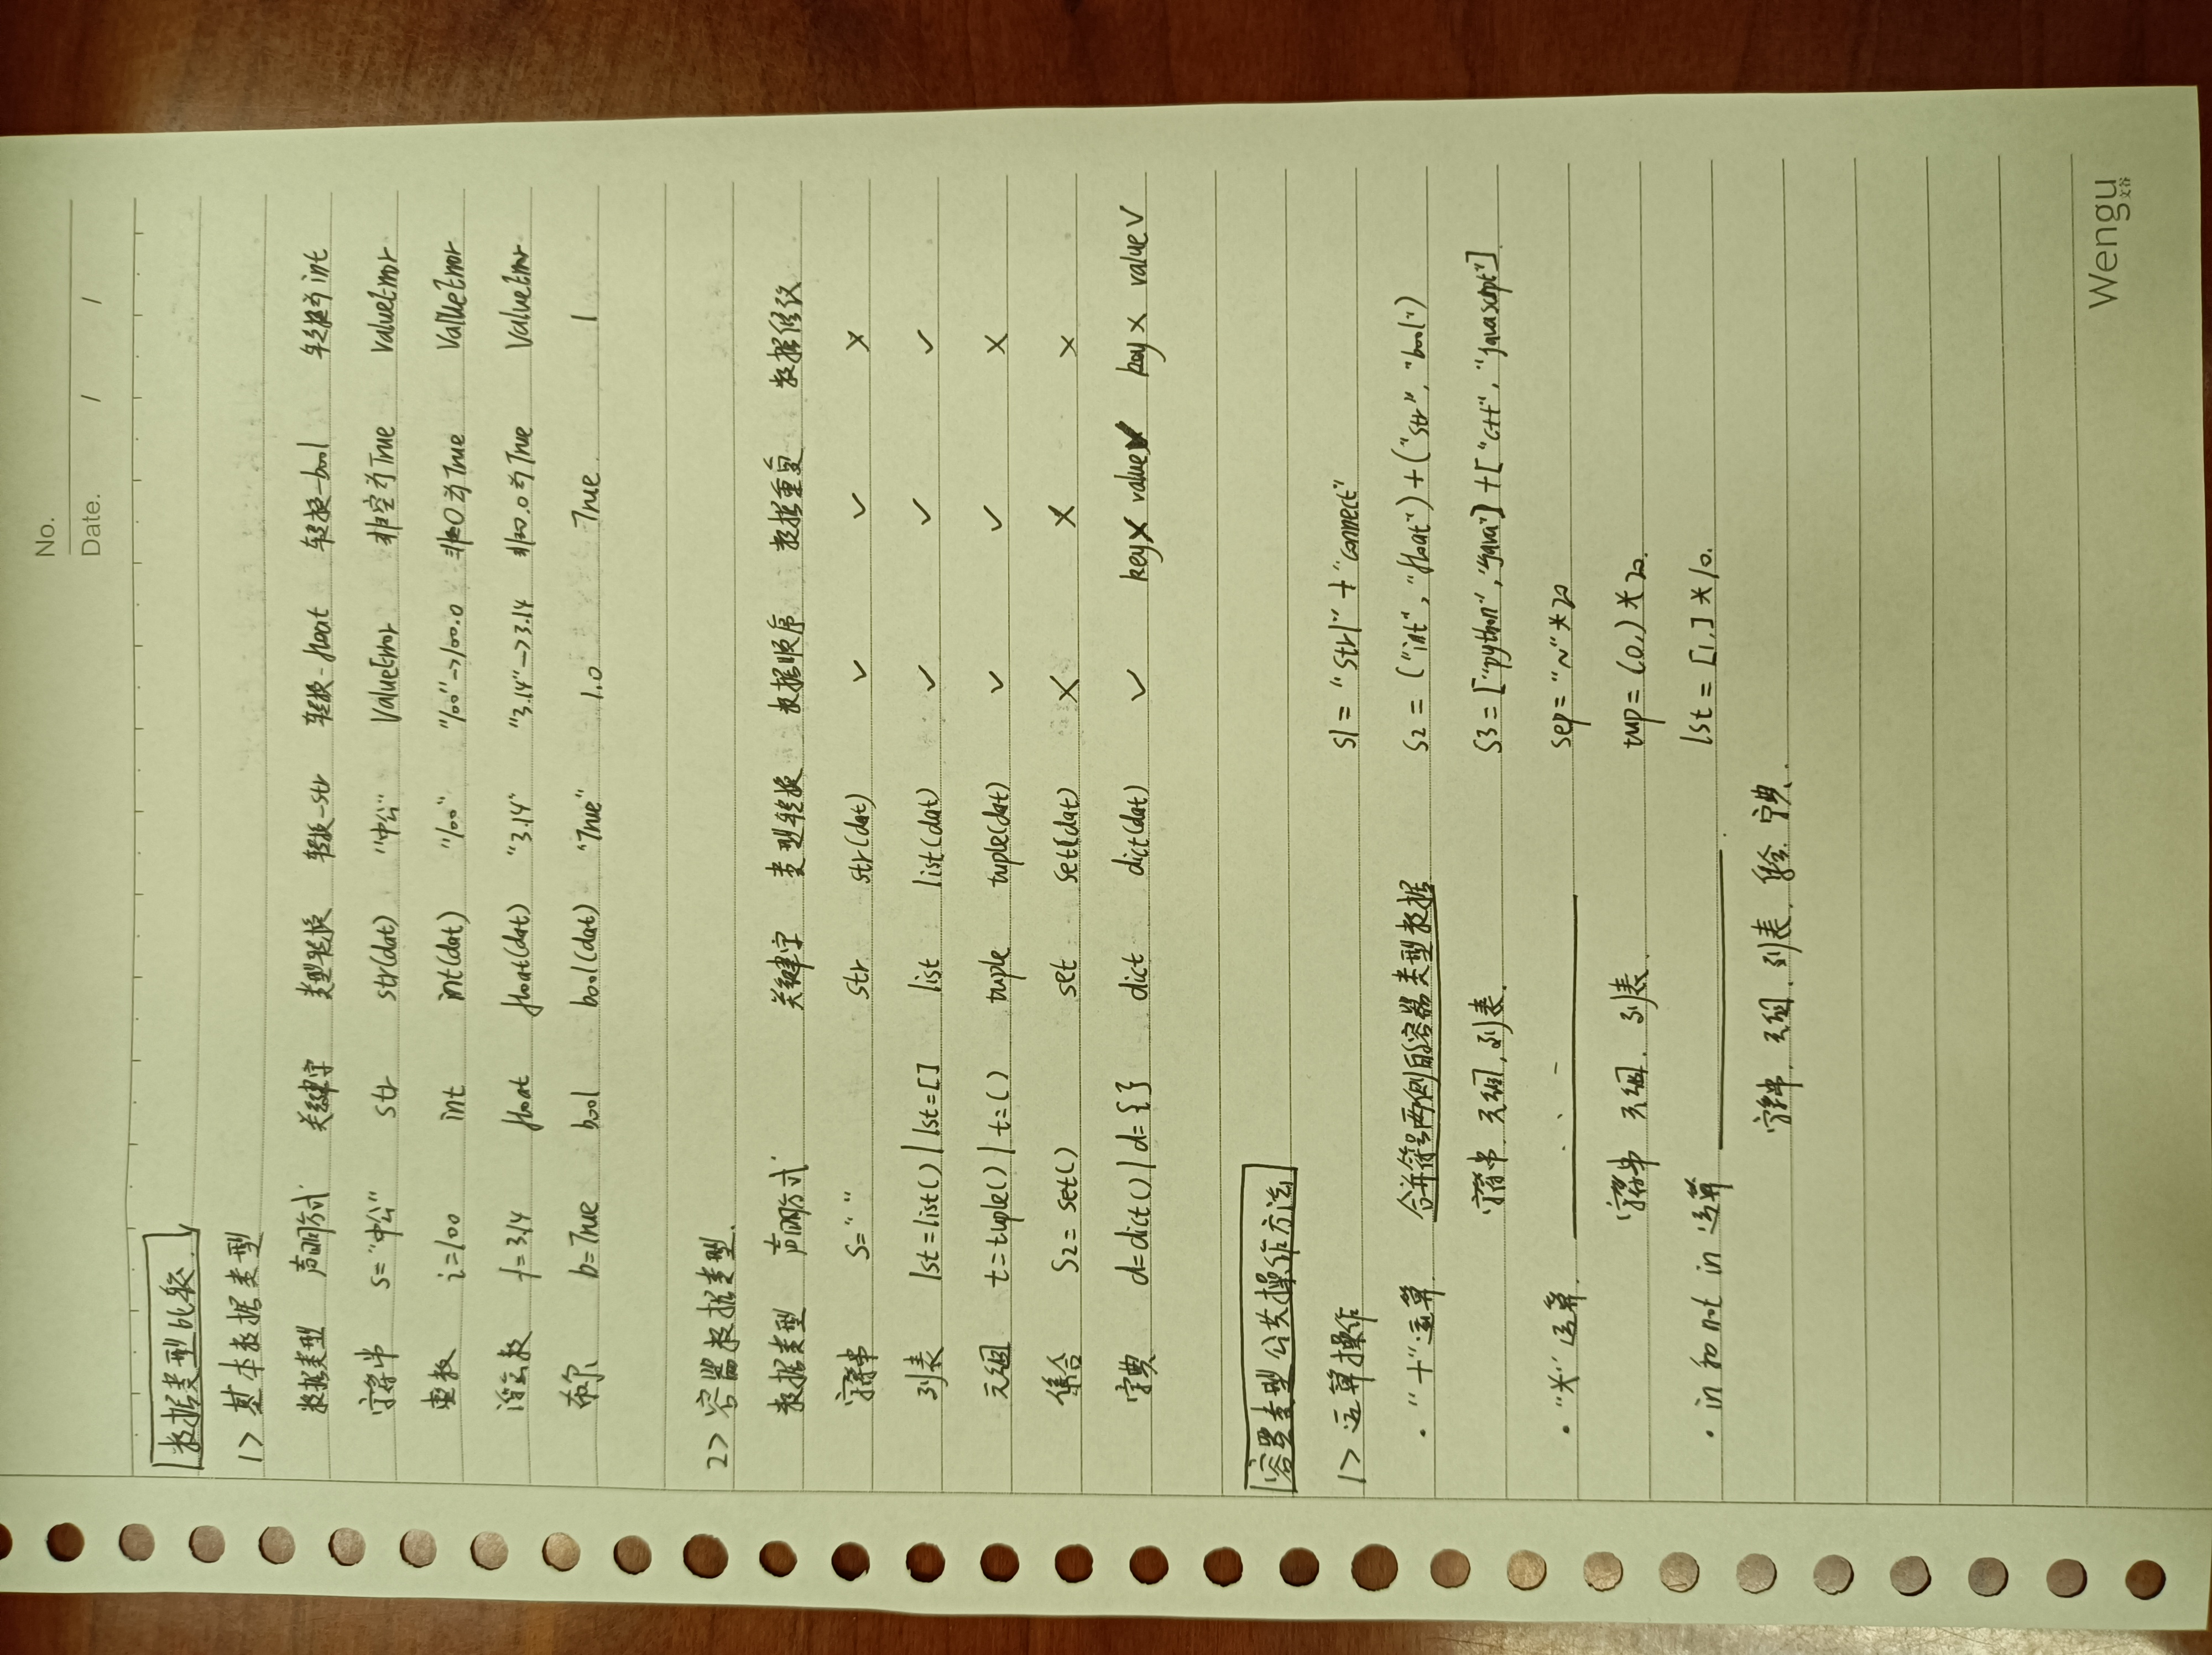 No.
Date. / /
数据类型比较.
1> 基本数据类型
数据类型 声明方式 关键字 类型转换 转换-str 转换-float 转换-bool 转换为int
字符串 s="中公" str str(dat) "中公" ValueError 非空为True ValueError
整数 i=100 int int(dat) "100" "100"->100.0 非0为True ValueError
浮点数 f=3.14 float float(dat) "3.14" "3.14"->3.14 非0.0为True ValueError
布尔 b=True bool bool(dat) "True" 1.0 True 1
2> 容器数据类型.
数据类型 声明方式 关键字 类型转换 数据顺序 数据重复 数据修改
字符串 s=" " str str(dat) ✓ ✓ ×
列表 lst=list() | lst=[] list list(dat) ✓ ✓ ✓
元组 t=tuple() | t=() tuple tuple(dat) ✓ ✓ ×
集合 s2=set() set set(dat) × × ×
字典 d=dict() | d={} dict dict(dat) ✓ key× value✓ key× value✓
容器类型公共操作方法
1> 运算操作 s1="str1"+"connect"
· "+"运算. 合并符号两侧的容器类型数据 s2=("int","float")+("str","bool")
字符串. 元组, 列表. s3=["python","java"]+["c++","javascript"]
· "*"运算. sep="~"*20
字符串 元组. 列表. tup=(0,)*20.
· in和not in运算 lst=[1,]*10.
字符串. 元组. 列表. 集合. 字典.
Wengu
文谷